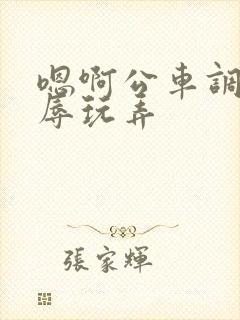 嗯啊公車調
辱玩弄
張家輝